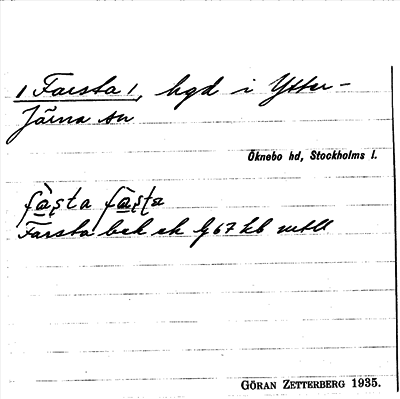 / Farsta /, hgd i Ytter-
Järna sn
Öknebo hd, Stockholms l.
fàşta fàşta
Farsta bek ek G 67 kb
GÖRAN ZETTERBERG 1935.